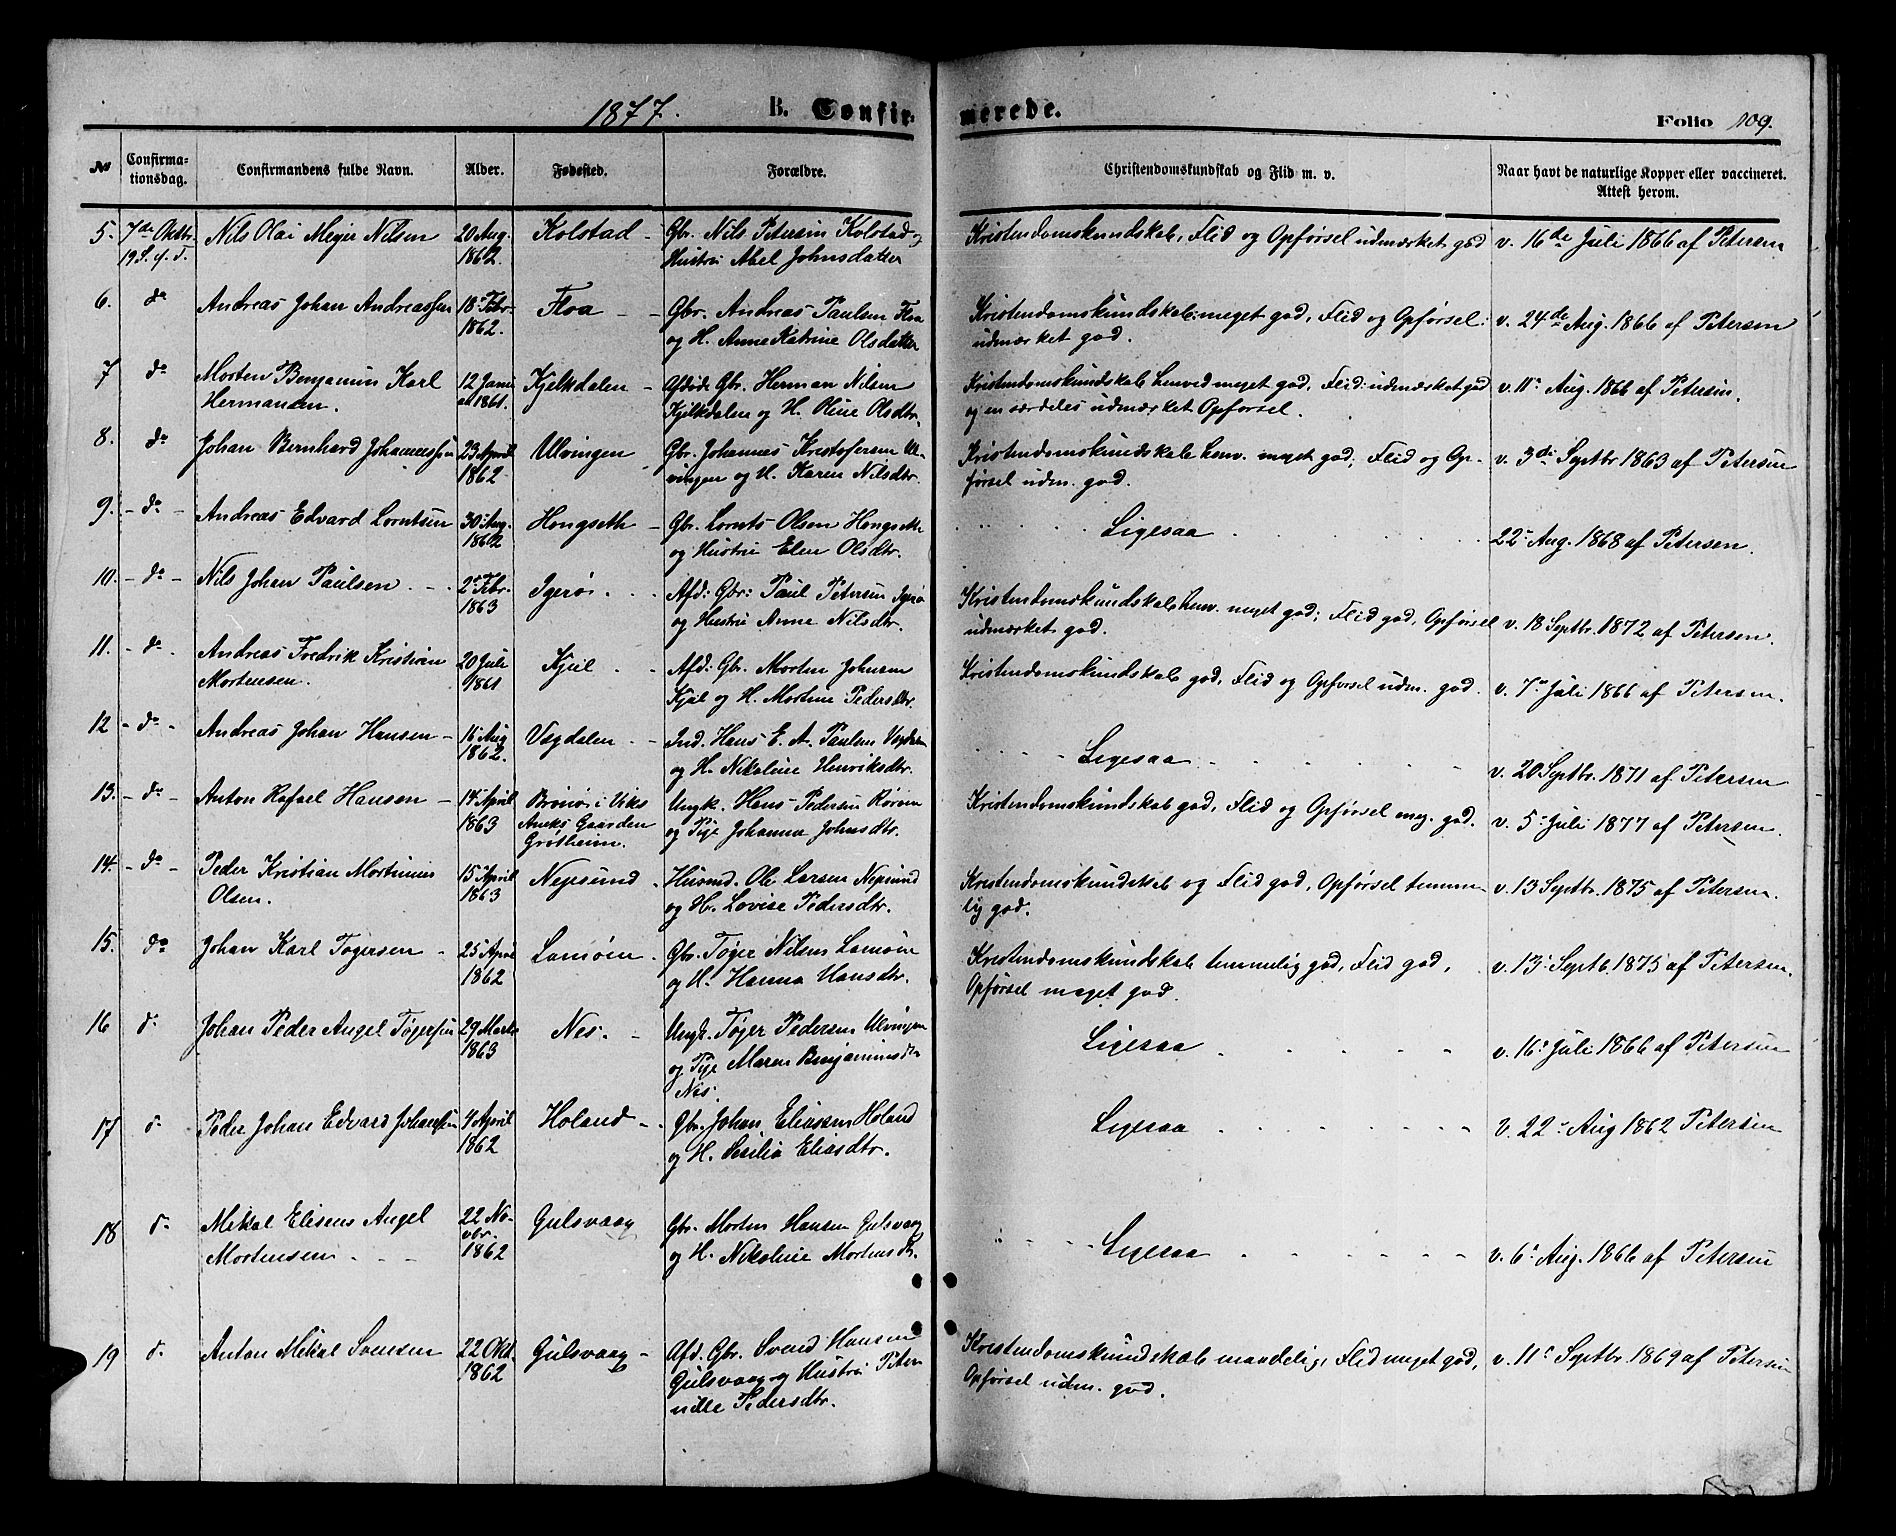 1877. B. Confirmerede. Folio 109.
No Confirmationsdag. Confirmandens fulde Navn. Alder. Fødested. Forældre. Christendomskundskab og Flid m. v. Naar havt de naturlige Kopper eller vaccineret. Attest herom.
5. 7de Oktbr. Nils Olai Meyer Nilsen 20 Aug. Kolstad - Gbr. Nils Petersen Kolstad og Kristendomskundskab, Flid og Opførsel udmærket god v. 16de Juli 1866 af Petersen
19 S. e. T. 1862. Hustru Abel Johnsdatter
6. do Andreas Johan Andreassen 18 Febr. Floa - - Gbr. Andreas Paulsen Floa Kristendomskundskab: meget god, Flid og Opførsel: v. 24de Aug. 1866 af Petersen
1862. og H. Anne Katrine Olsdatter udmærket god.
7 do Morten Benjamin Karl 12 Kjelkdalen - Gbr. Herman Nilsen Kristendomskundskab henved meget god, Flid: udmærket god v. 11 Aug. 1866 af Petersen.
Hermansen. 1861. Kjelkdalen og H. Oline Olsdtr. og en særdeles udmærket Opførsel.
8. do Johan Bernhard Johannessen 23 April Ulvingen Gbr. Johannes Kristofersen Ul- Kristendomskundskab henv. meget god; Flid og Op- v. 3de Septbr 1863 af Petersen
1862 vingen og H. Karen Nilsdtr. førsel udm. god.
9. - do - Andreas Edvard Lorntsen 30 Aug. Hongseth - Gbr. Lornts Olsen Hongseth Ligesaa 22 Aug. 1868 af Petersen.
1862 og Hustru Elen Olsdtr.
10. - do - Nils Johan Paulsen - - - 2 Febr. Igerøi. Afd: Gbr: Paul Petersen Igerø Kristendomskundskab henv. meget god; Flid god, Opførsel v. 18 Septbr. 1872 af Petersen.
1863 og Hustru Anne Nilsdtr. udmærket god.
11. - do - Andreas Fredrik Kristian 20 Juli Kjul - - Afd: Gbr. Morten Johnsen Kristendomskundskab god, Flid og Opførsel udm. god. v. 7 Juli 1866 af Petersen.
Mortensen. 1861 Kjul og H. Mortine Pedersdtr.
12 - do - Andreas Johan Hansen - 16 Aug Vagdalen - - Ind. Hans E. A. Paulsen Vagdalen Ligesaa v. 20 Septbr. 1871 af Petersen
1862. og H. Nikoline Henriksdtr.
13. - do - Anton Rafael Hansen - 14 April Brønø i Viks Ungk. Hans Pedersen Kristendomskundskab god, Flid og Opførsel meg. god. v. 5 Juli 1877 af Petersen.
1863 Aneks Gaarden og Pige Johanna Johnsdtr.
Grøsheim.
14. - do - Peder Kristian Mortinius 15 April Nepsund - Husmd. Ole Larsen Nepsund Kristendomskundskab og Flid god, Opførsel temme- v. 13 Septbr. 1875 af Petersen.
Olsen. 1863 og H. Lovise Pedersdtr. lig god.
15. do Johan Karl Tøgersen - 25 April Lamøen - Gbr. Tøger Nilsen Lamøen Kristendomskundskab temmelig god, Flid god, v. 13 Septb. 1875 af Petersen.
1862 og H. Hanna Hansdtr. Opførsel meget god.
16 d. Johan Peder Angel Tøgersen 29 Marts Nes. - Ungk. Tøger Pedersen Ulvingen Ligesaa v. 16 Juli 1866 af Petersen
1863 og Pige Maren Benjaminsdtr
Nes.
17 d. Peder Johan Edvard Johansen 4 April Holand - - Gbr. Johan Eliassen Holand Ligesaa v. 22 Aug 1862 Petersen
1862 og H. Sesilia Eliasdtr.
18 d. Mikal Elisæus Angel 22 No- Gulsvaag Gbr. Morten Hansen Gulsvaag Ligesaa v. 6 Aug. 1866 af Petersen
Mortensen - - - vbr. 1862 og H. Nikoline Mortensdtr.
19 d. Anton Mikal Svensen 22 Okt. Gulsvaag - Afd. Gbr. Svend Hansen Kristendomskundskab maadelig, Flid meget god, v. 11 Septbr. 1869 af Petersen
1862 Gulsvaag og Hustru Peter- Opførsel udm. god.
nille Pedersdtr.